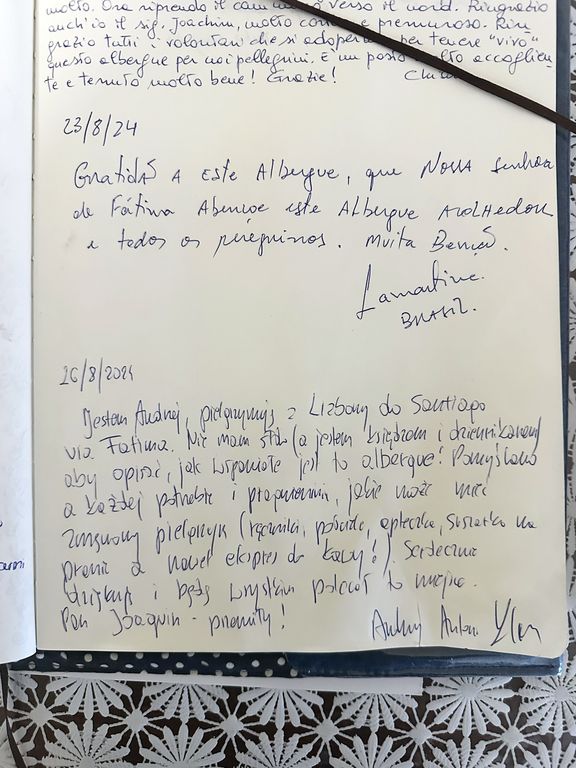 molto. Ora riprendo il cammino verso il nord. Ringrazio
anch'io il sig. Joachim, molto e premuroso. Rin-
grazio tutti i volontari che si adoperano per tenere "vivo"
questo albergue per noi pellegrini. È un posto molto accoglien-
te e tenuto molto bene! Grazie!
23/8/24
Gratidão A este Albergue, que NOSSA Senhora
de Fátima Abençoe este Albergue Acolhedor
e todos os peregrinos. Muita Benção.
Lamartine.
BRASIL.
26/8/2024
Jestem Andrzej, pielgrzymuję z Lizbony do Santiago
via Fatima. Nie mam słów (a jestem księdzem i dziennikarzem)
aby opisać, jak wspaniałe jest to albergue! Pomyślano
o każdej potrzebie i pragnieniu, jakie może mieć
zmęczony pielgrzym (ręczniki, pościel, apteczka, suszarka na
pranie a nawet ekspres do kawy!). Serdecznie
dziękuję i będę wszystkim polecał to miejsce.
Pan Joaquin -
Andrzej Antoni